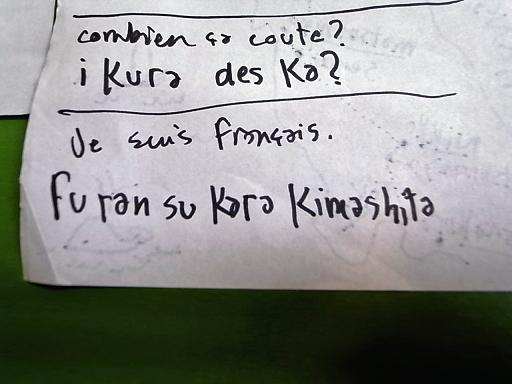 combien ça coute?
i Kura des Ka?
Je suis français.
Furansu Kara Kimashita